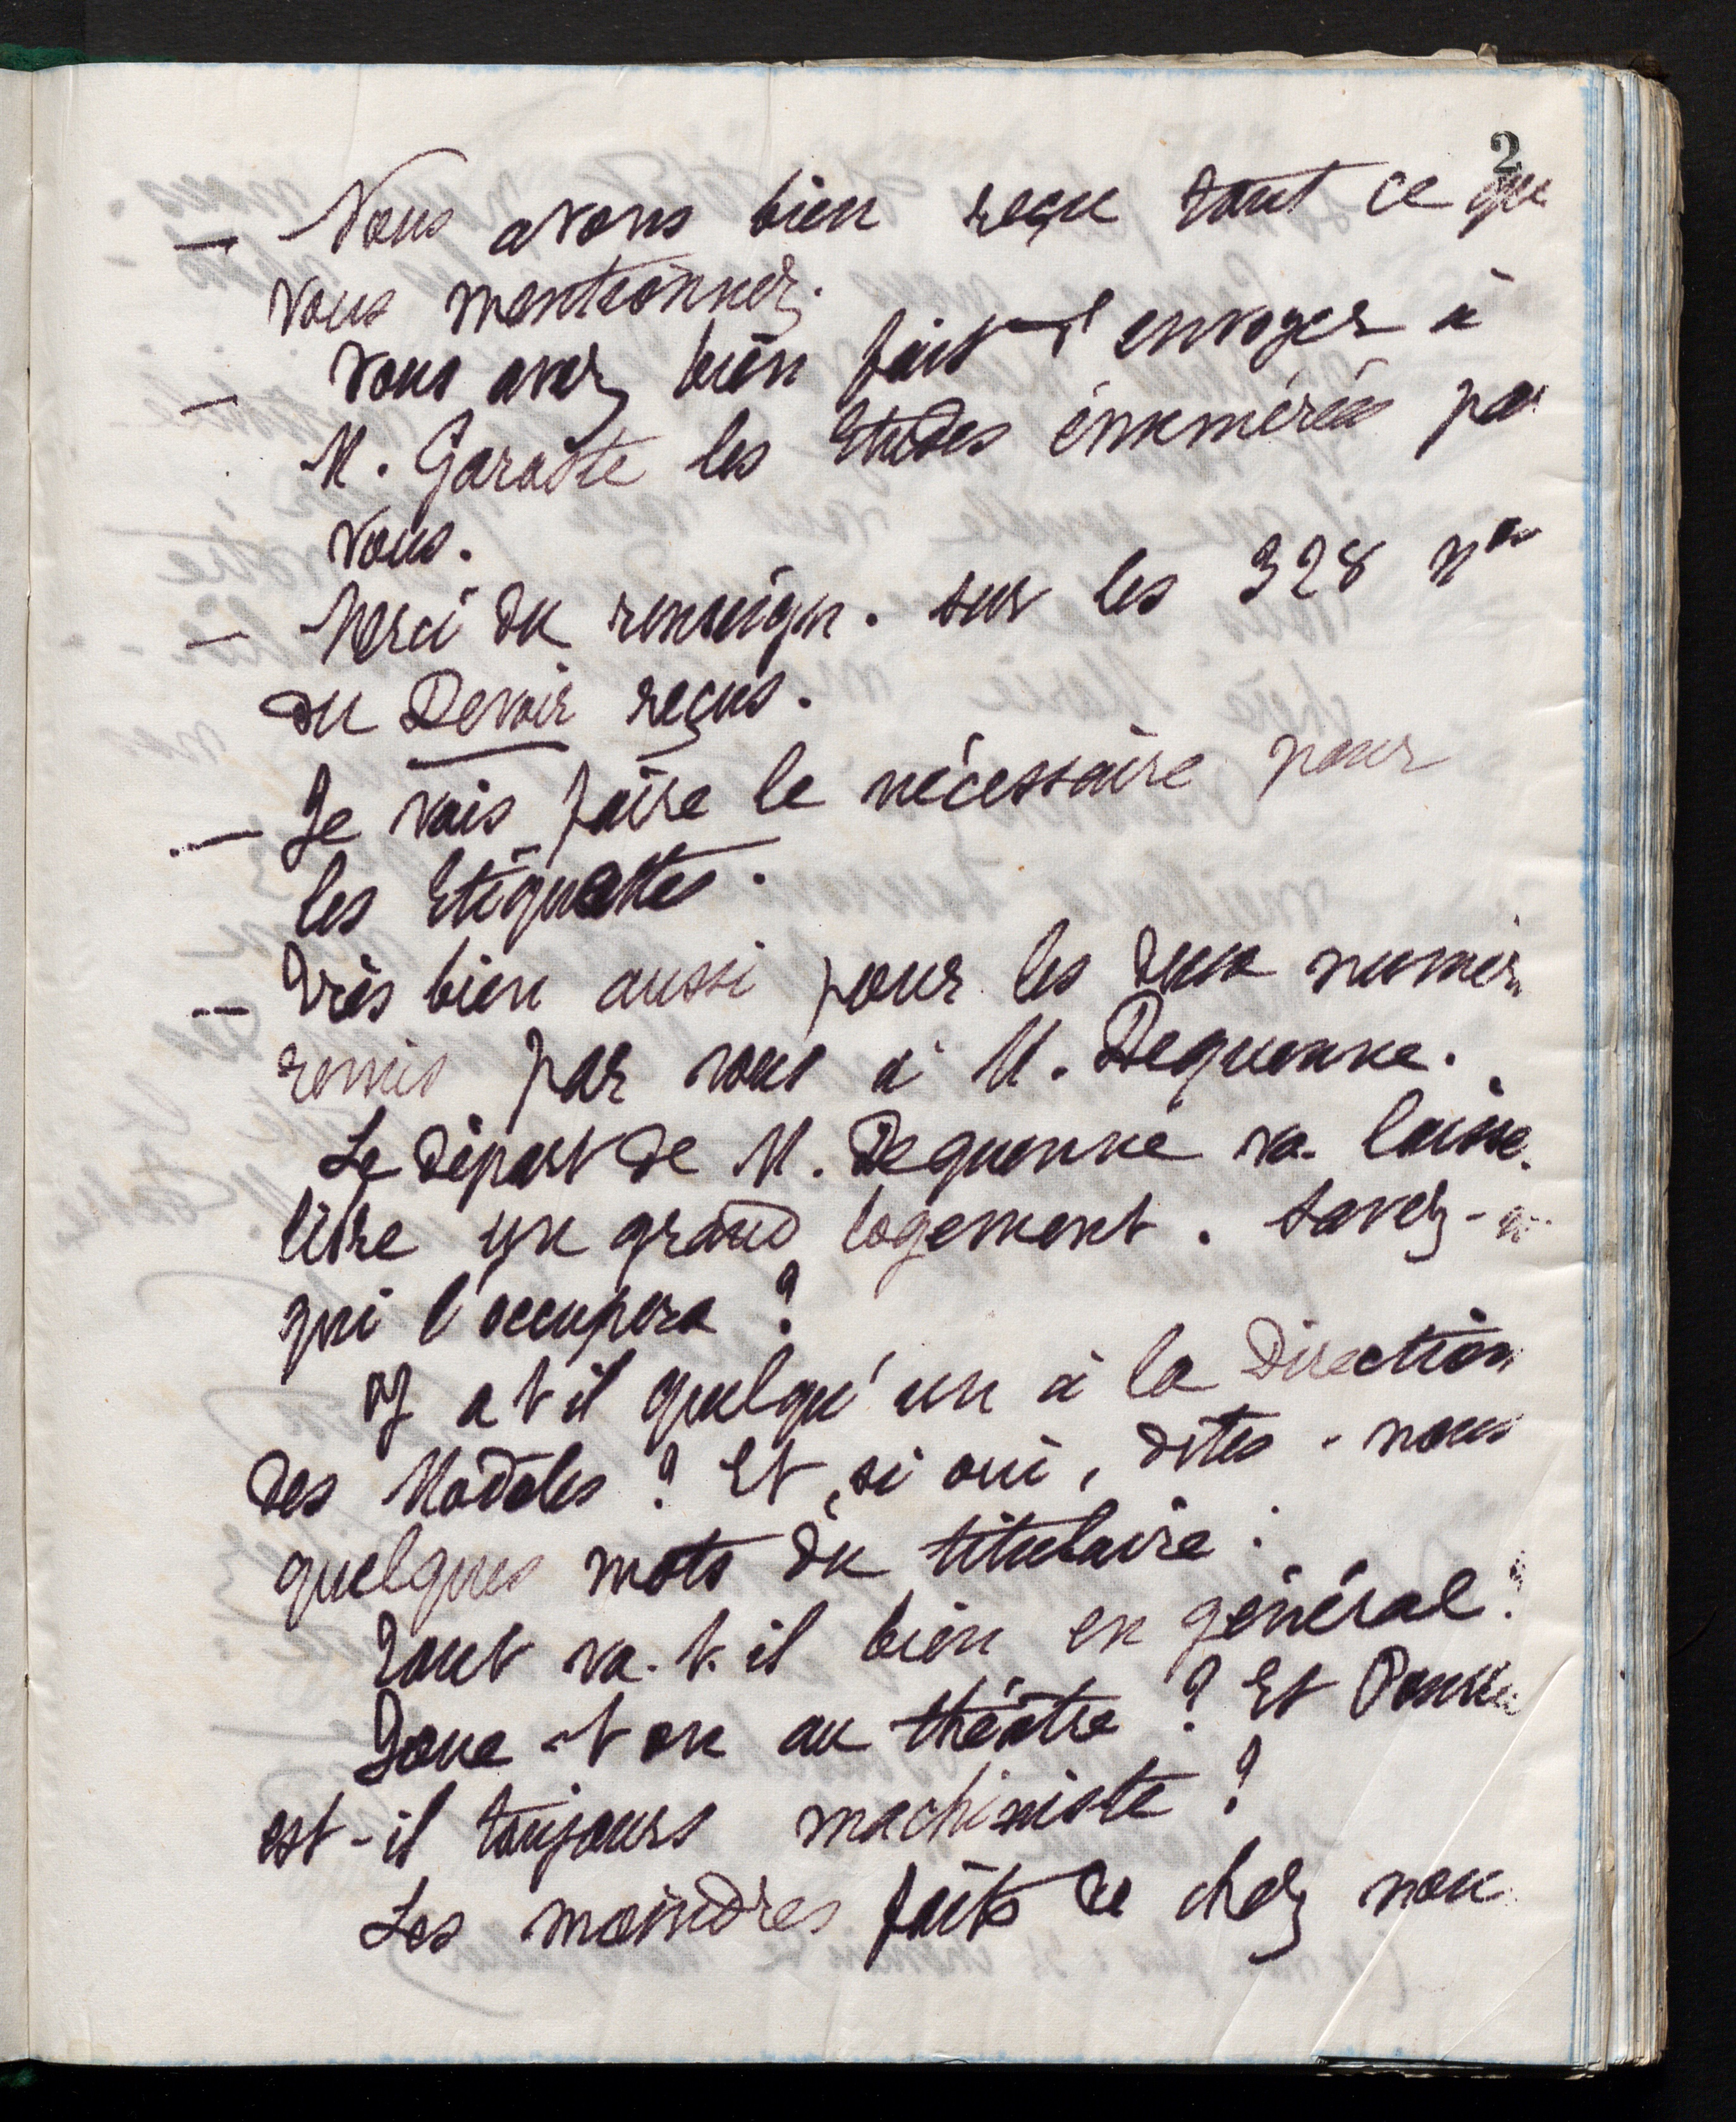 2
— Nous avons bien reçu tout ce que
vous mentionnez.
— Vous avez bien fait d'envoyer à
M. Garaitte les Etudes énumérées par
vous.
— Merci du renseign. sur les 328 nos
du Devoir reçus.
— Je vais faire le nécessaire pour
les Etiquettes.
— Très bien aussi pour les deux numéro
remis par vous à M. Dequenne.
Le départ de M. Dequenne va laisse
libre un grand logement. Savez-
qui l'occupera ?
Y a t il quelqu'un à la Direction
des Modèles ? Et, si oui, dites-nous
quelques mots du titulaire.
Tout va-t-il bien en général ?
Joue-t on au théâtre ? Et
est-il toujours machiniste ?
Les moindres faits de chez nou